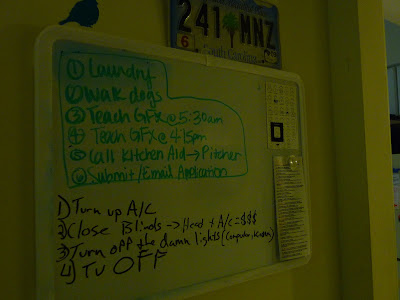 241 MNZ
6
South Carolina
① Laundry
② Walk dogs
③ Teach GFX @ 5:30am
④ Teach GFX @ 4:15pm
⑤ Call Kitchen Aid → Pitcher
⑥ Submit/Email Application
1) Turn up A/C
2) Close Blinds → Heat + A/C = $$$
3) Turn off the damn lights (Computer, Kitchen)
4) TV OFF